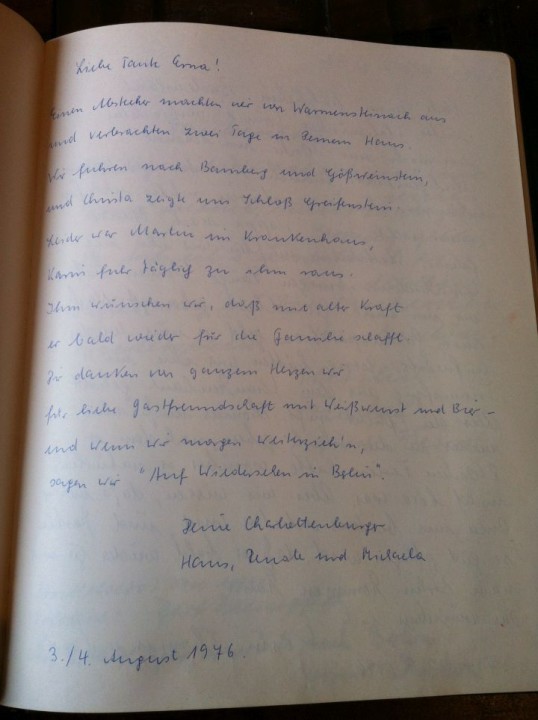 Liebe Tante Erna!
Einen Abstecher machten wir von Warmensteinach aus
und verbrachten zwei Tage in Deinem Haus.
Wir fuhren nach Bamberg und Gößweinstein,
und Christa zeigte uns Schloß Greifenstein.
Leider war Martin im Krankenhaus,
Karin fuhr täglich zu ihm raus.
Ihm wünschen wir, daß mit alter Kraft
er bald wieder für die Familie schafft.
Dir danken von ganzem Herzen wir
für liebe Gastfreundschaft mit Weißwurst und Bier -
und wenn wir morgen weiterzieh'n,
sagen wir "Auf Wiedersehen in Berlin".
Deine Charlottenburger
Hans, Renate und Michaela
3./4. August 1976.